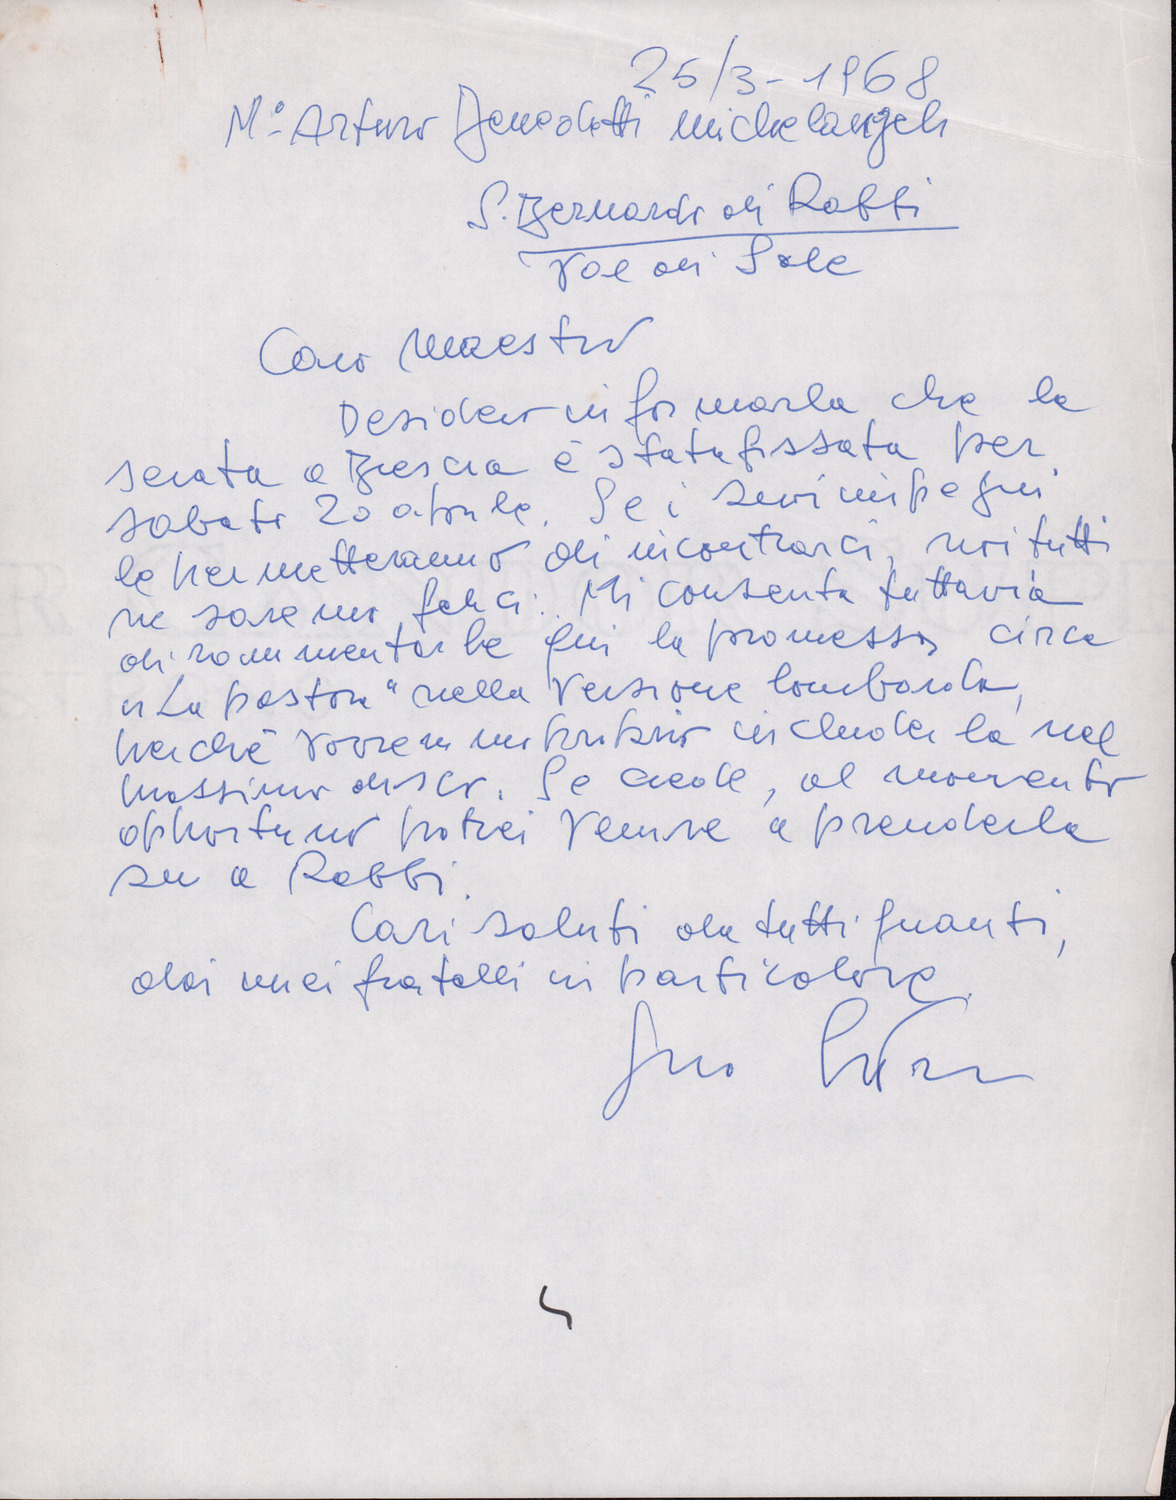 25/3-1968
M.º Arturo Benedetti Michelangeli
S. Bernardo di Rabbi
Val di Sole
Caro Maestro
Desidero informarla che la
serata a Brescia è stata fissata per
sabato 20 aprile. Se i suoi impegni
le permetteranno di incontrarci, noi tutti
ne saremo felici. Mi consenta tuttavia
di rammentarle qui la promessa circa
"La pastora" nella versione lombarda,
perché vorrei proprio includerla nel
prossimo disco. Se crede, al momento
opportuno potrei venire a prenderla
su a Rabbi.
Cari saluti da tutti quanti,
dai miei fratelli in particolare.
Suo